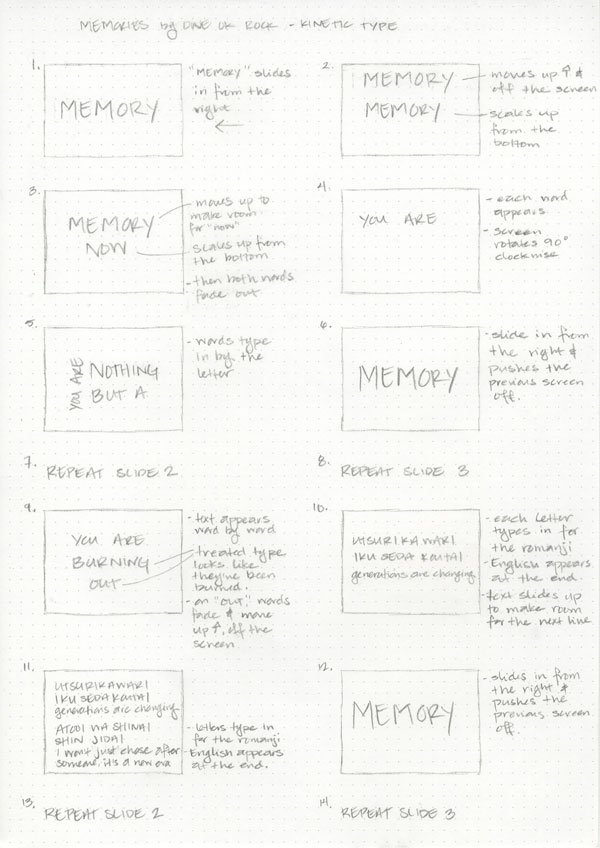 MEMORIES by ONE OK ROCK - KINETIC TYPE
1.
MEMORY
"MEMORY" slides
in from the
right
2.
MEMORY
MEMORY
moves up ↑ &
off the screen
scales up
from the
bottom
3.
MEMORY
NOW
moves up to
make room
for "now"
scales up from
the bottom
- then both words
fade out
4.
YOU ARE
- each word
appears
- screen
rotates 90°
clockwise
5.
YOU ARE
NOTHING
BUT A
- words type
in by the
letter
6.
MEMORY
- slide in from
the right &
pushes the
previous screen
off.
7.
REPEAT SLIDE 2
8.
REPEAT SLIDE 3
9.
YOU ARE
BURNING
OUT
- text appears
word by word
- treated type
looks like
they've been
burned.
- on "OUT," words
fade & move
up ↑, off the
screen
10.
UTSURIKAWARI
IKU SEDA KOUTAI
generations are changing
- each letter
types in for
the romanji
- English appears
at the end.
- text slides up
to make room
for the next line.
11.
UTSURIKAWARI
IKU SEDA KOUTAI
generations are changing
ATOOI WA SHINAI
SHIN JIDAI
I won't just chase after
someone, it's a new era
- letters type in
for the romanji
- English appears
at the end.
12.
MEMORY
- slides in from
the right &
pushes the
previous screen
off.
13.
REPEAT SLIDE 2
14.
REPEAT SLIDE 3